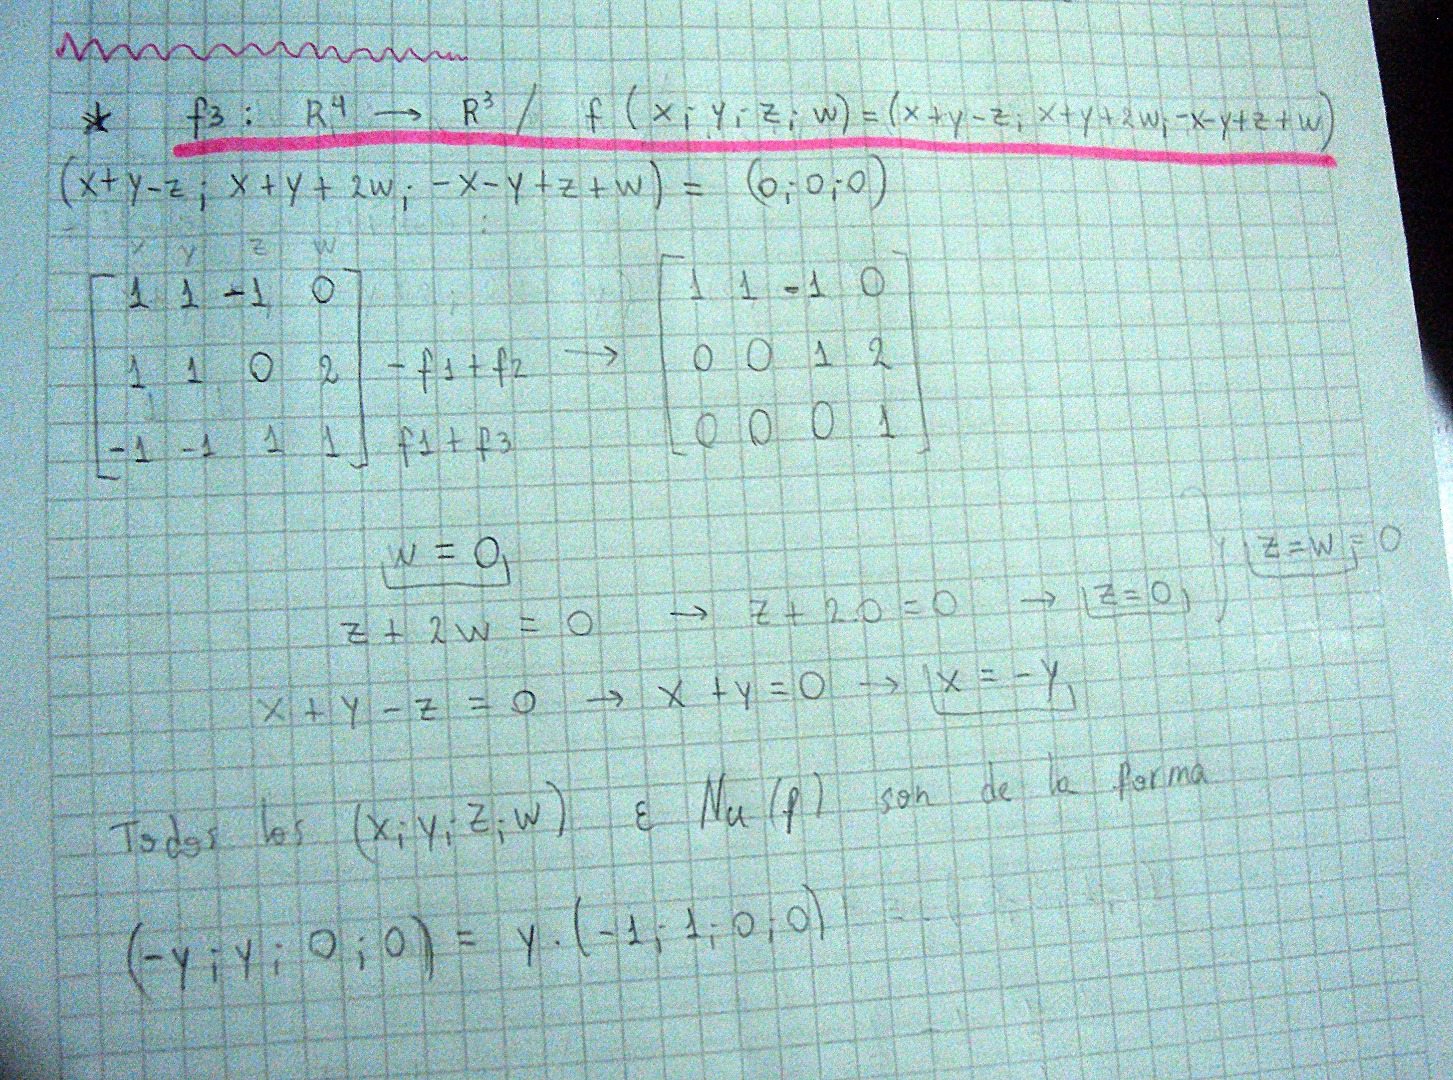 * f3 : R⁴ → R³ / f (x; y; z; w) = (x+y-z; x+y+2w; -x-y+z+w)
(x+y-z; x+y+2w; -x-y+z+w) = (0;0;0)
x y z w
1 1 -1 0 1 1 -1 0
1 1 0 2 -f1+f2 → 0 0 1 2
-1 -1 1 1 f1+f3 0 0 0 1
w = 0
z = w = 0
z + 2w = 0 → z + 2.0 = 0 → z=0
x + y - z = 0 → x + y = 0 → x = -y
Todos los (x; y; z; w) ε Nu (f) son de la forma
(-y; y; 0; 0) = y. (-1; 1; 0; 0)